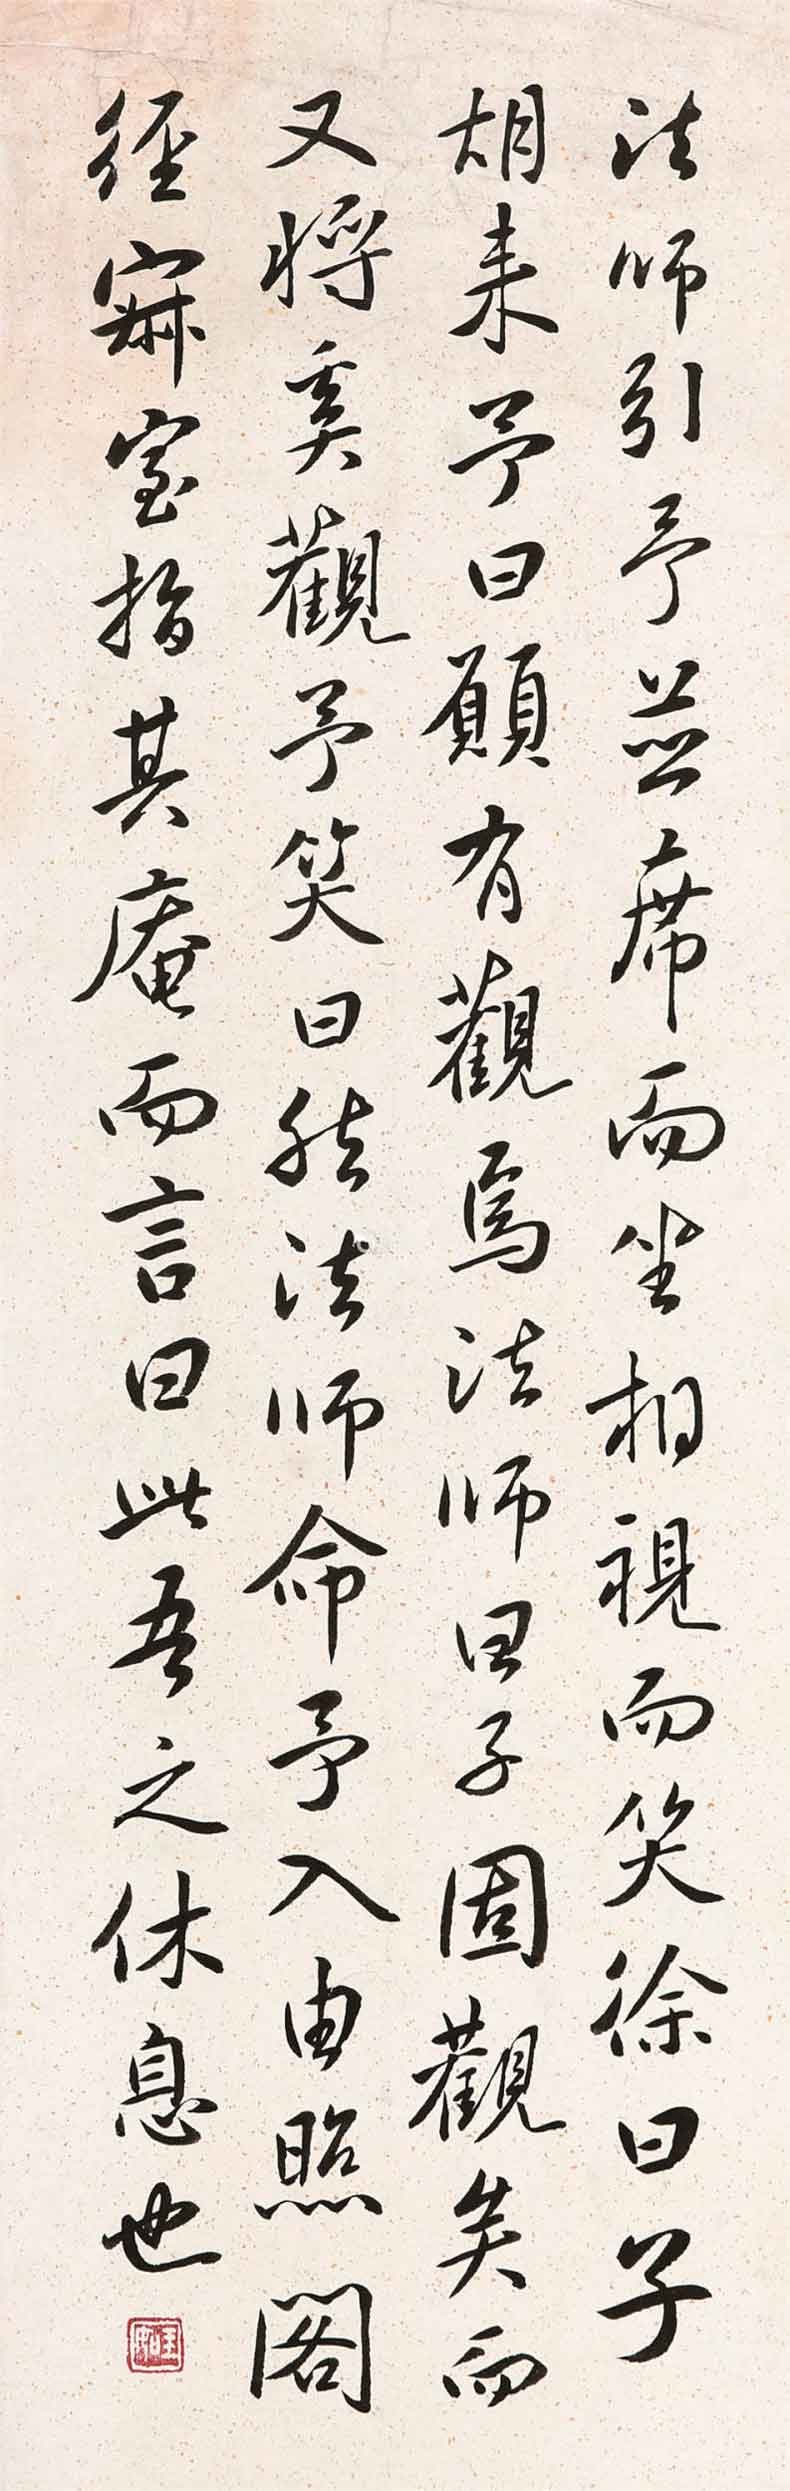 法師引予並席而坐相視而笑徐曰子
胡来予曰願有觀焉法師曰子固觀矣而
又將奚觀予笑曰然法師命予入由照閣
徑寂室指其庵而言曰此吾之休息也